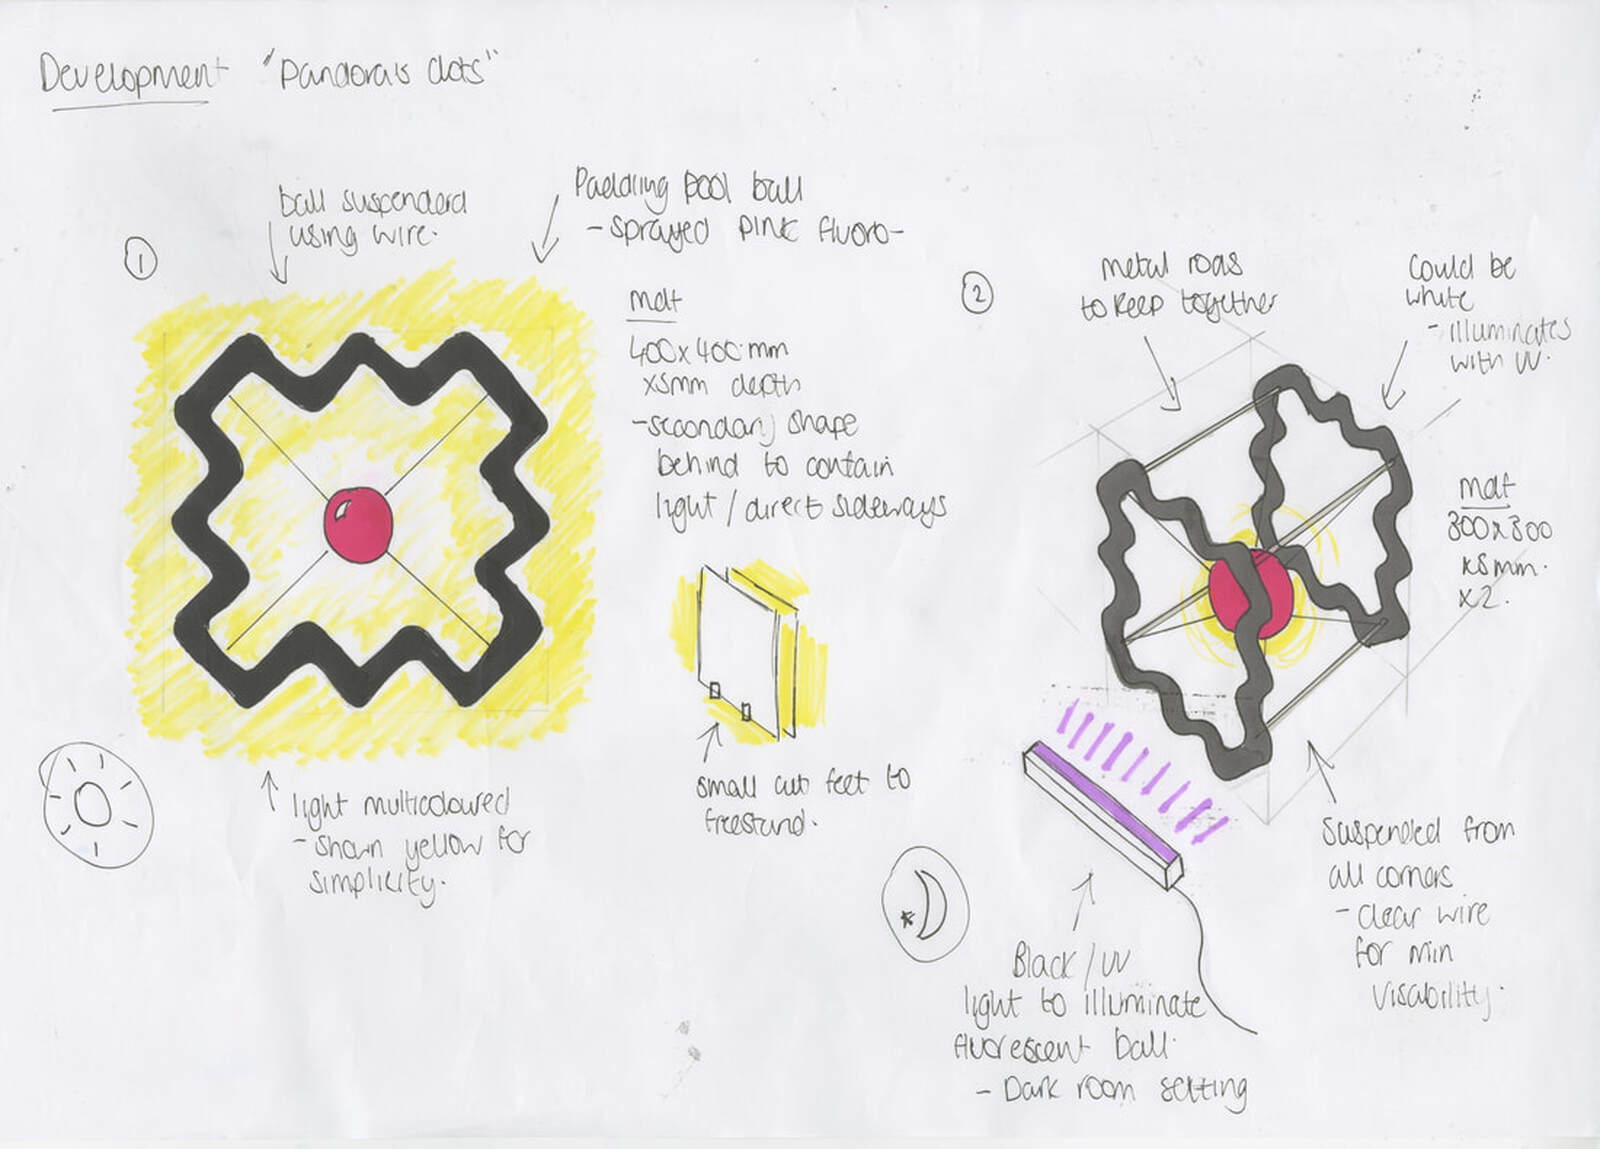 Development "Pandora's dots"
①
ball suspended
using wire.
Paddling pool ball
- sprayed pink fluoro -
mdf
400x400 mm
x5mm depth
- secondary shape
behind to contain
light / direct sideways
small cut feet to
freestand.
light multicoloured
- shown yellow for
simplicity.
②
metal rods
to keep together
Could be
white
- illuminates
with UV.
mdf
300x300
x5mm.
x2.
Suspended from
all corners
- clear wire
for min
visability.
Black / UV
light to illuminate
fluorescent ball.
- Dark room setting